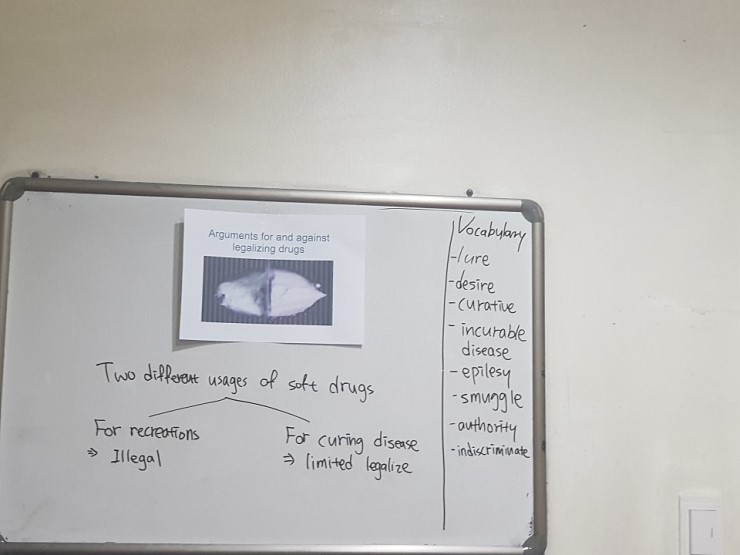 Arguments for and against
legalizing drugs
Two different usages of soft drugs
For recreations
⇒ Illegal
For curing disease
⇒ limited legalize
Vocabulary
-lure
-desire
-curative
- incurable
disease
- epilesy
- smuggle
-authority
-indiscriminate